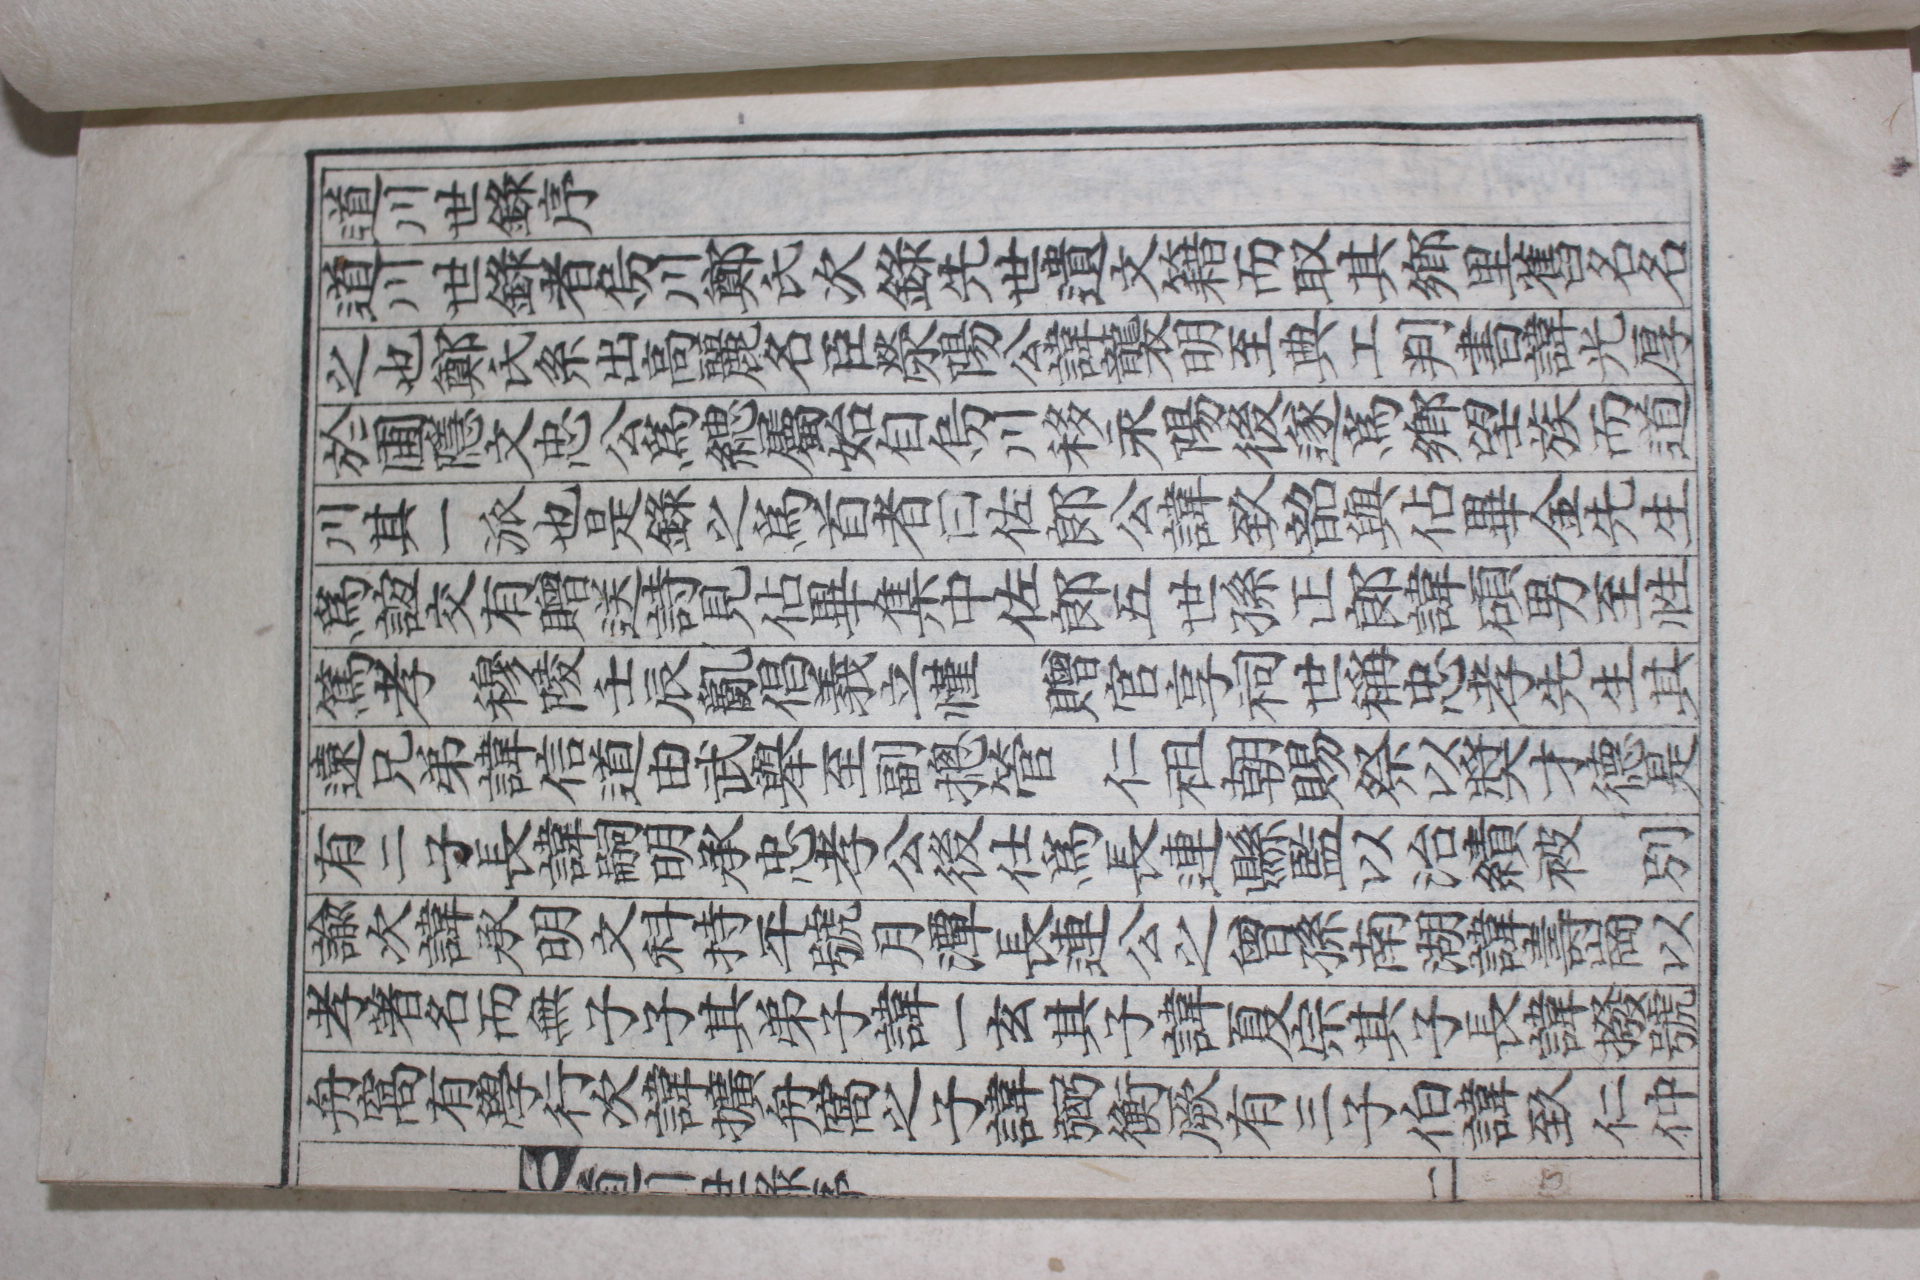 道川世錄序
道川世錄者烏川鄭氏次錄先世遺文籍而取其鄕里舊名名
之也鄭氏系出高麗名臣滎陽公諱襲明至典工判書諱光厚
於圃隱文忠公爲緦屬始自烏川移永陽後遂爲鄕望族而道
川其一派也是錄之爲首者曰佐郞公諱致韶與佔畢金先生
爲誼交有贈送詩見佔畢集中佐郞五世孫正郞諱碩男至性
篤孝 穆陵壬辰亂倡義立慬 贈官享祠世稱忠孝先生其
遠兄弟諱信道由武擧至副摠管 仁祖朝賜祭以奬才德是
有二子長諱嗣明承忠孝公後仕爲長連縣監以治績被 別
諭次諱承明文科持平號月潭長連公之曾孫南湖諱壽崗以
孝著名而無子子其弟子諱一玄其子諱夏宗其子長諱撥號
舟窩有學行次諱擴舟窩之子諱弼衡厥有三子伯諱致仁仲
道川世錄序
一